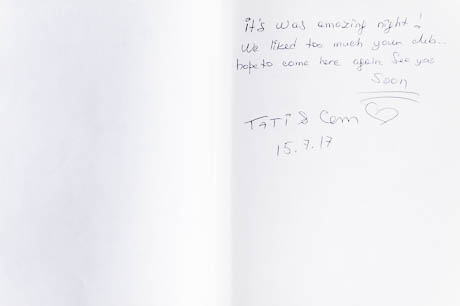 it's was amazing night!
We liked too much your club...
hope to come here again. See you
Soon
TATI & Cem
15.7.17